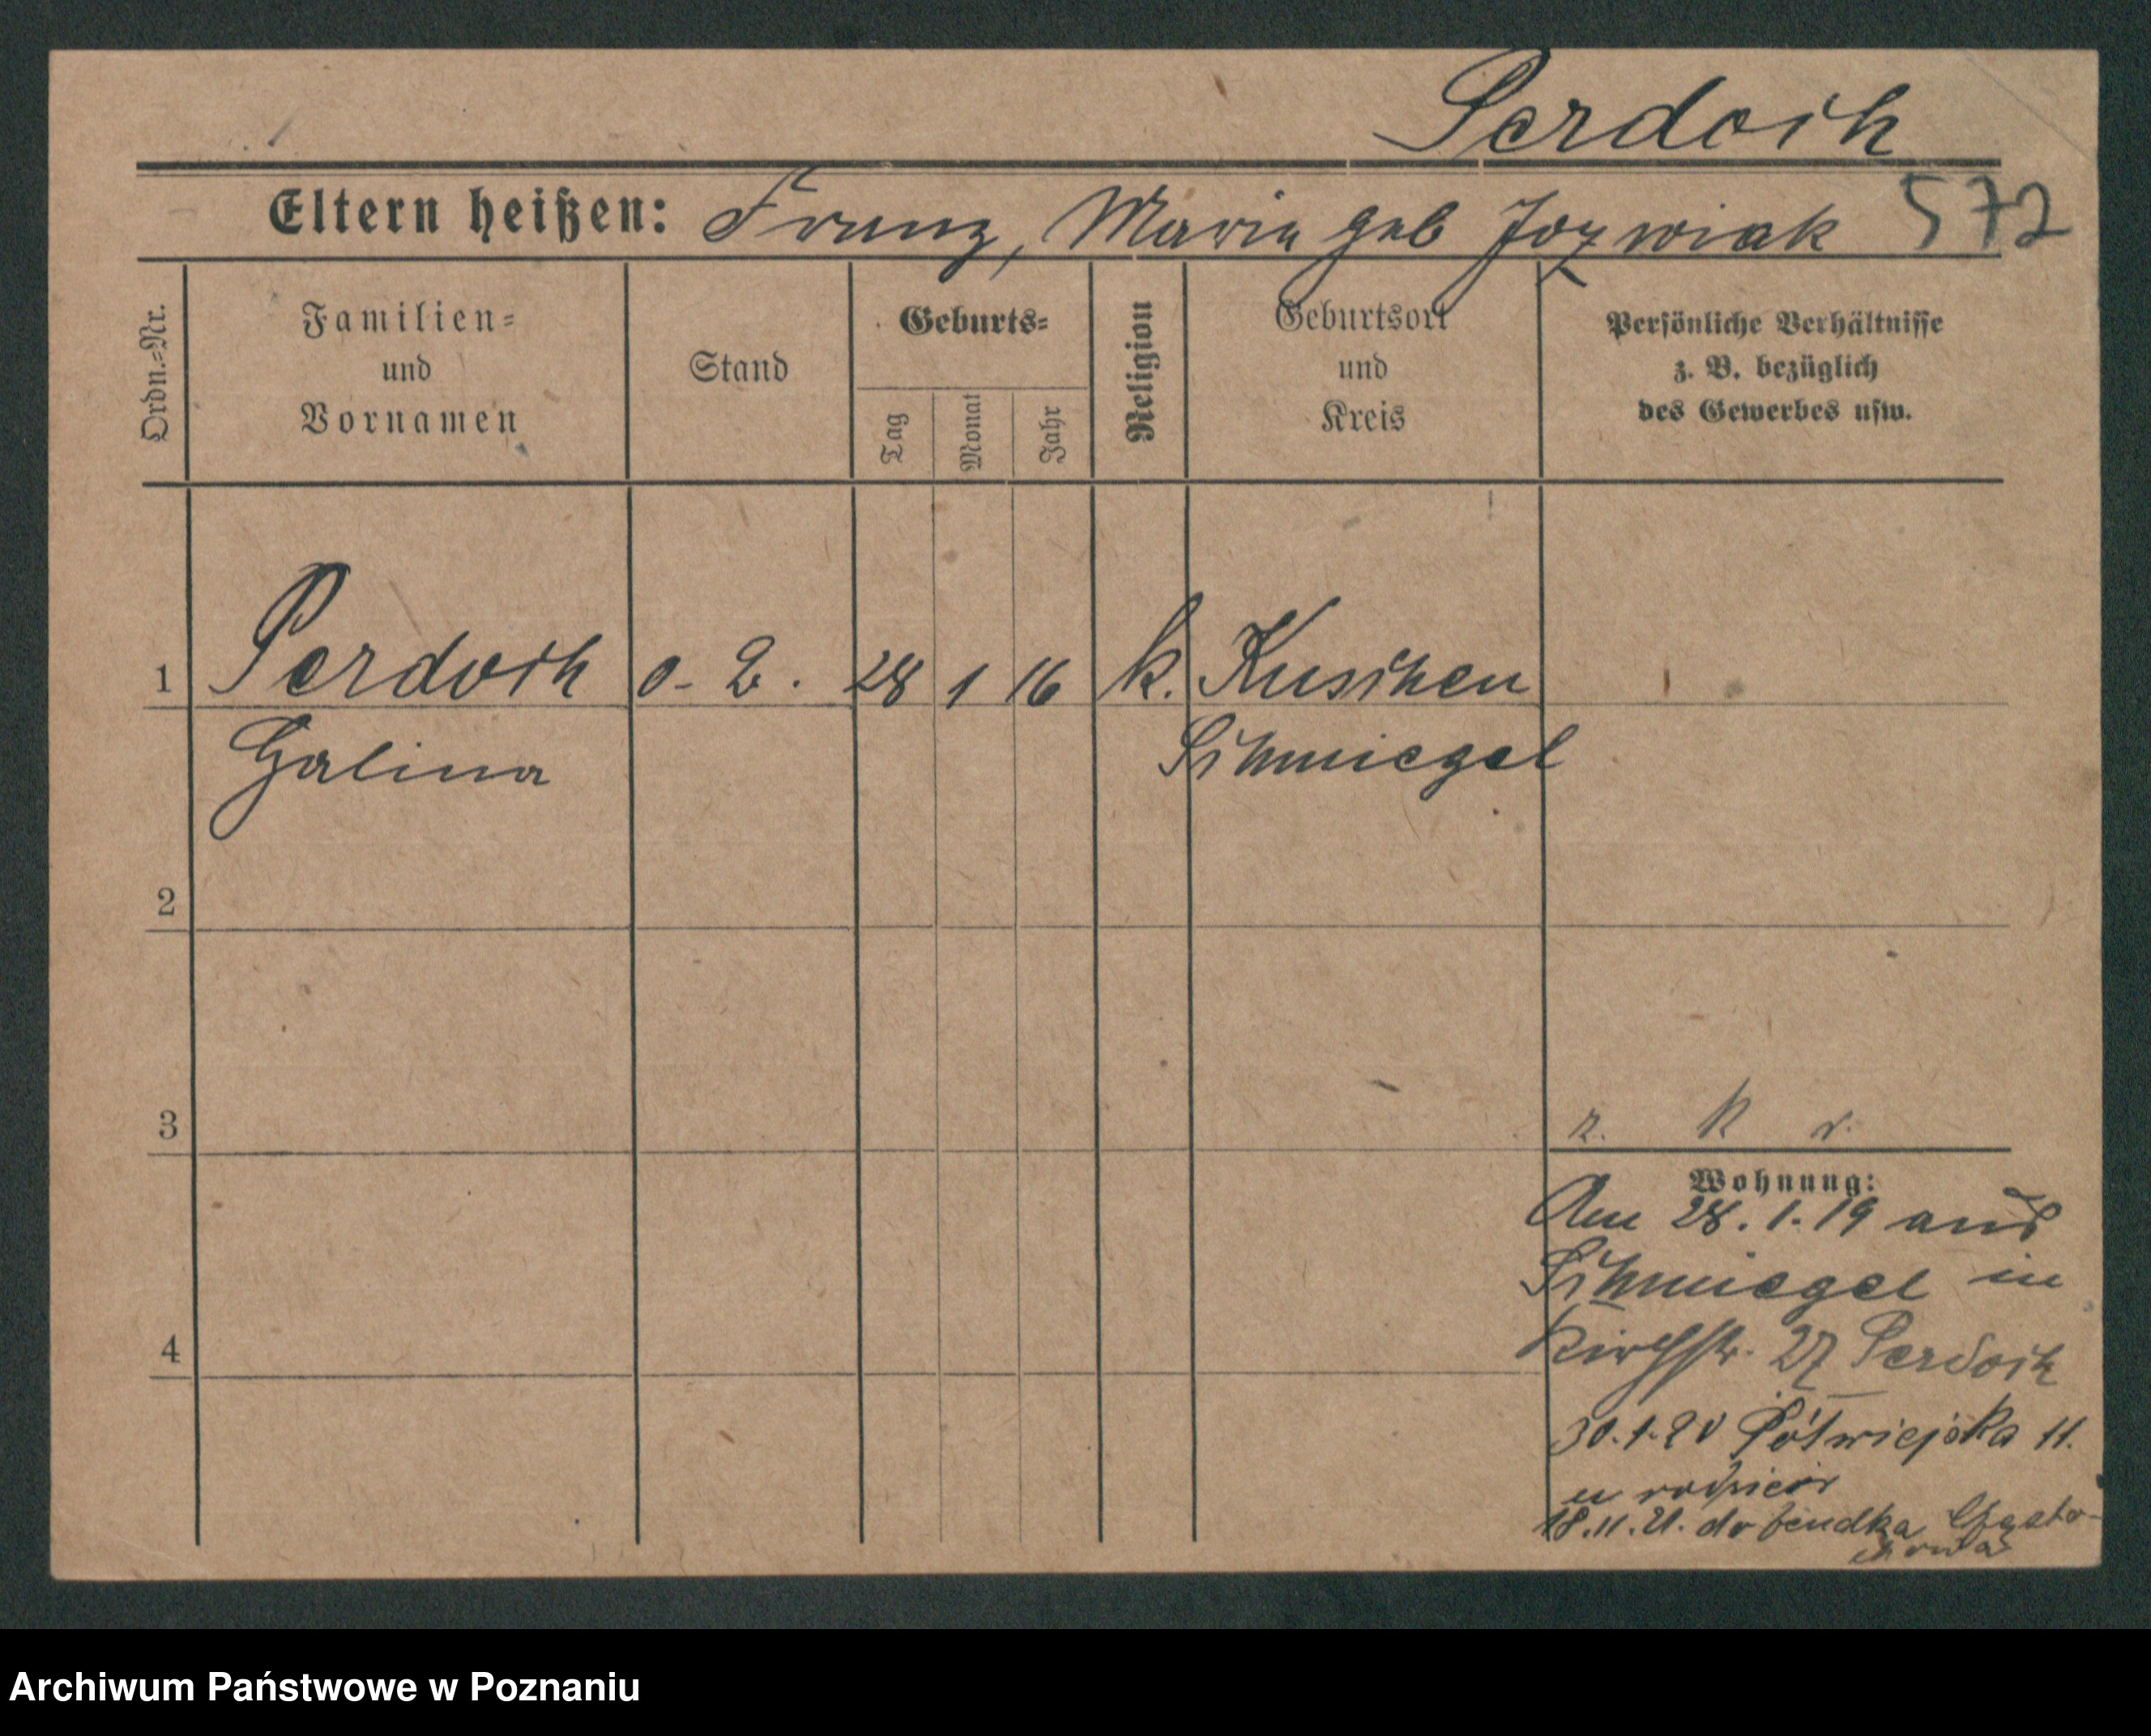 Perdoch
Eltern heißen: Franz, Maria geb Jozwiak 572
Ordn.=Nr.
Familien=
und
Vornamen
Stand
Geburts=
Tag
Monat
Jahr
Religion
Geburtsort
und
Kreis
Persönliche Verhältnisse
z. B. bezüglich
des Gewerbes usw.
1 Perdoch 28 1 16 k. Kuschen
Halina Schmiegel
2
3
4
Wohnung:
Am 28.1.19 aus
Schmiegel in
Kirchstr. 27 Perdoch
30.1.20 Półwiejska 11.
u rodziców
18.11.21. do Czesto-
chowa
Archiwum Państwowe w Poznaniu